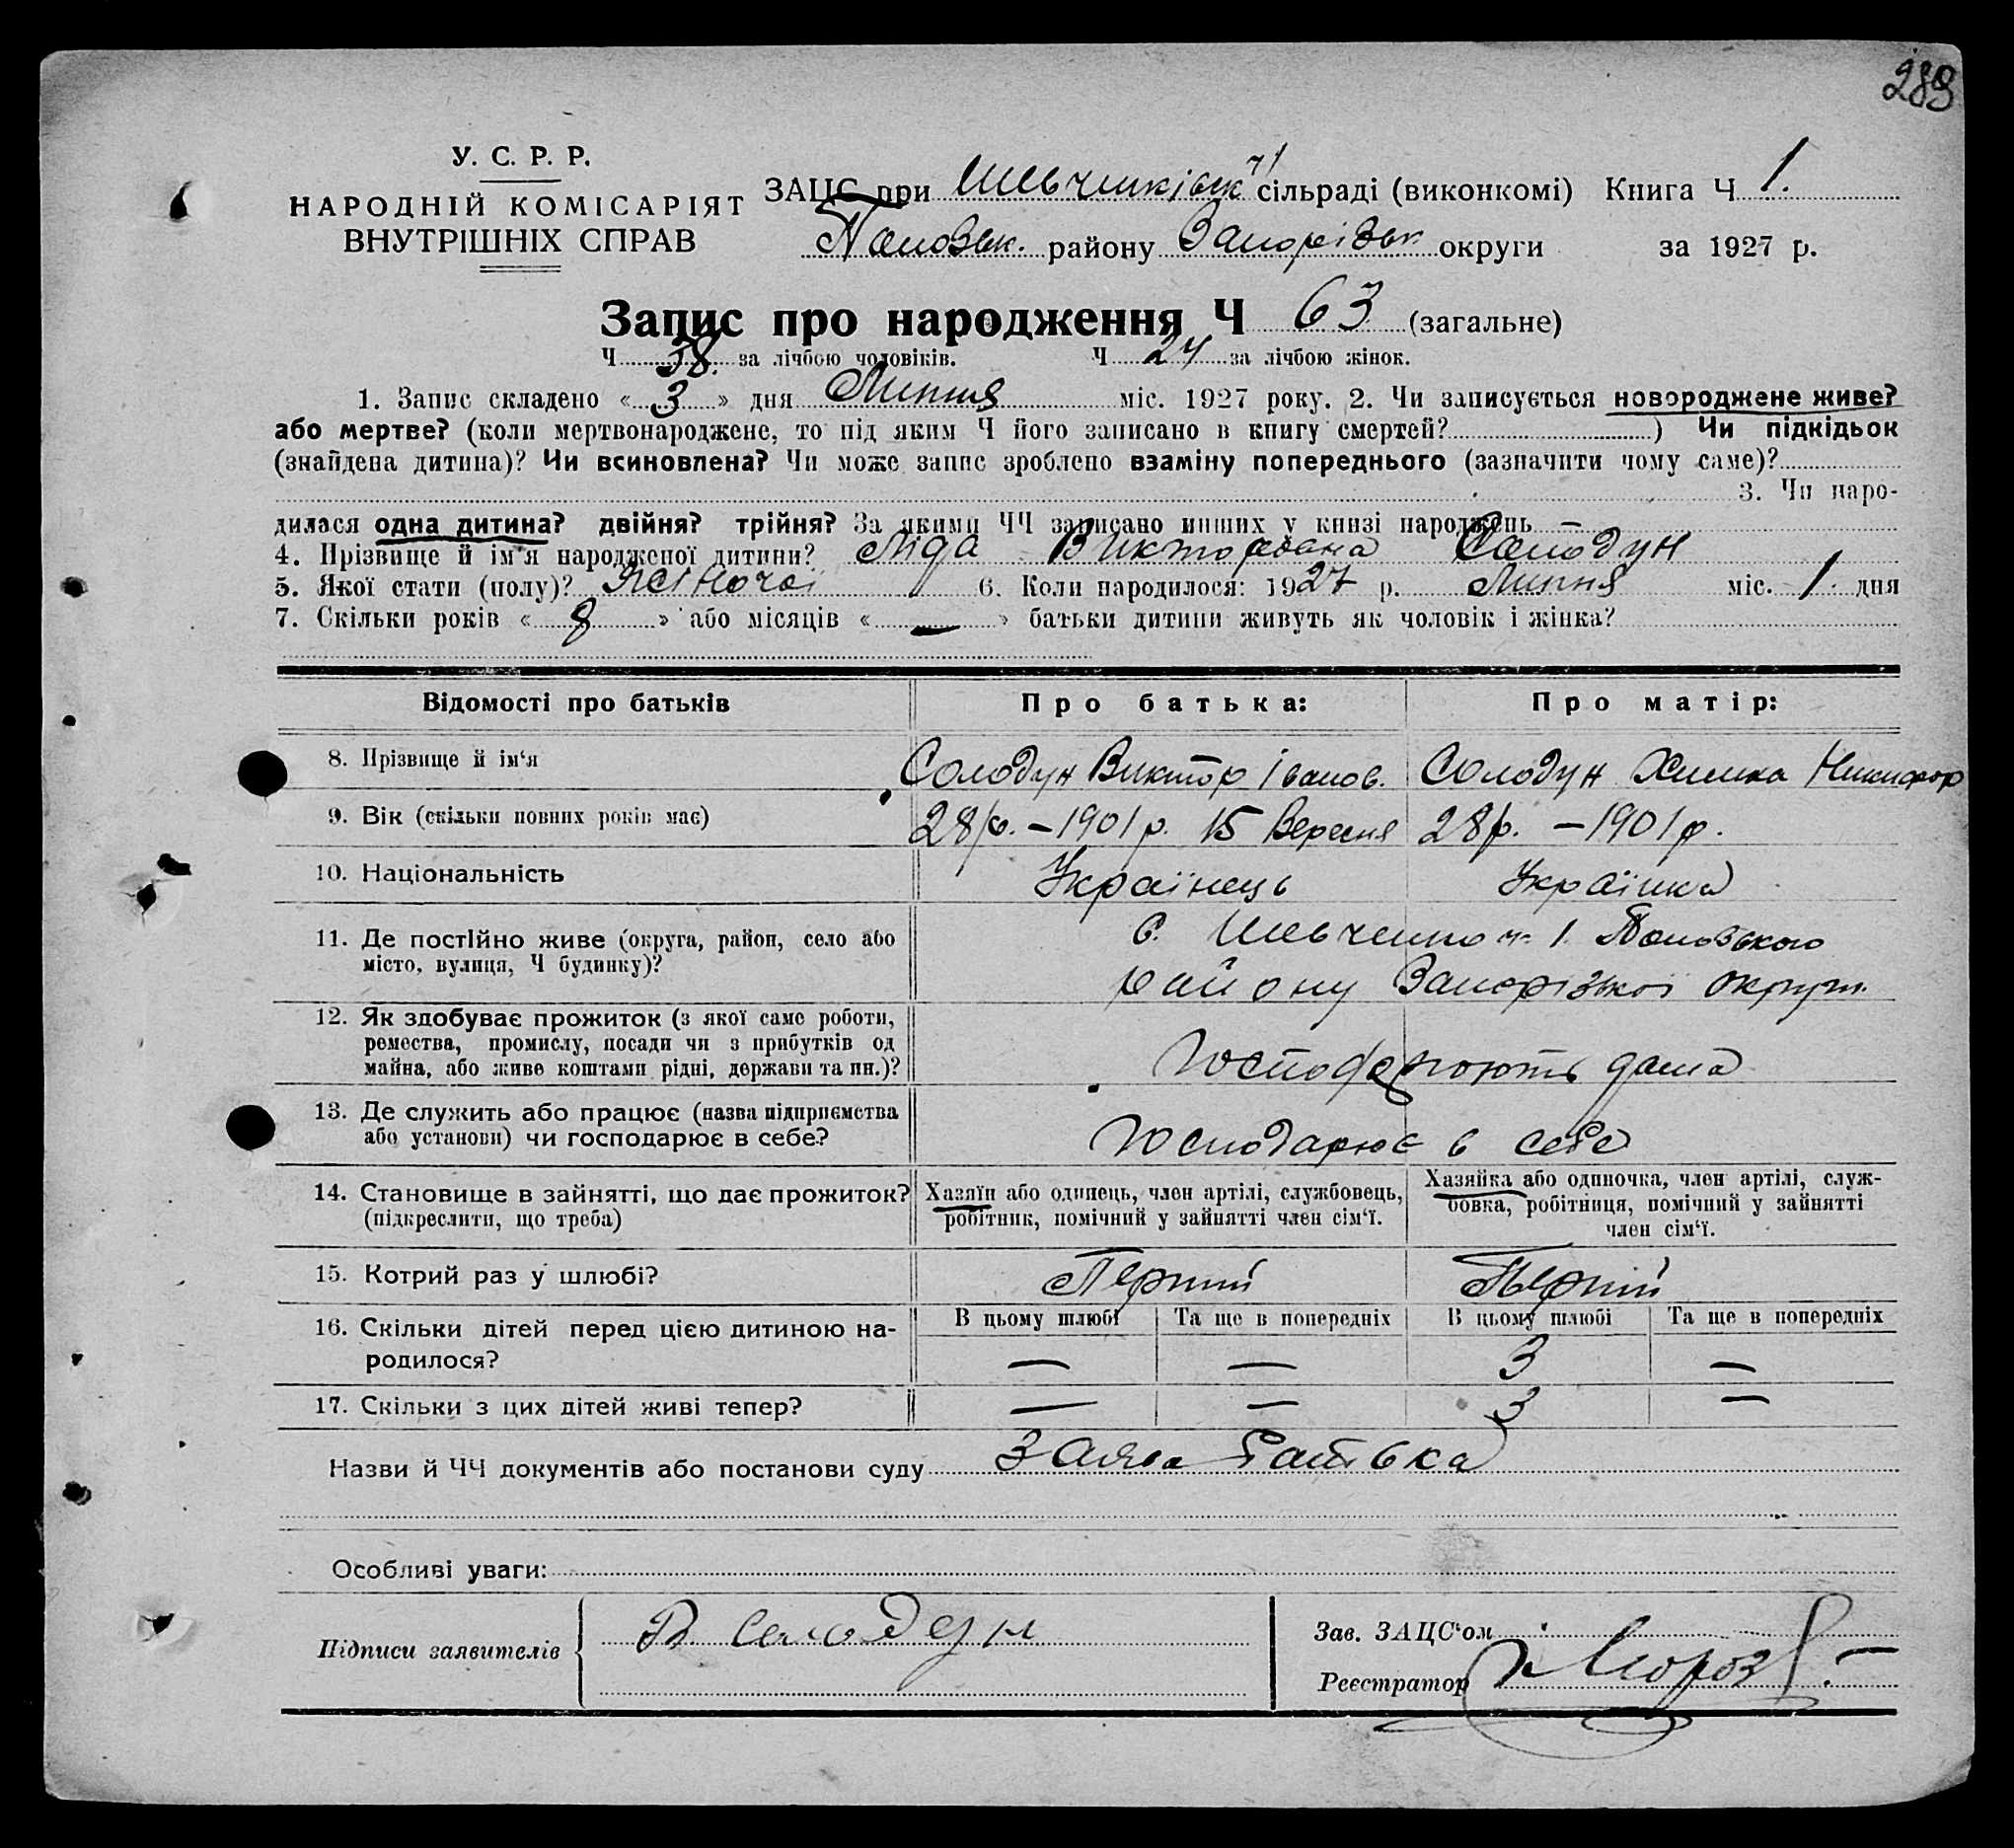 289
У. С. Р. Р.
НАРОДНІЙ КОМІСАРІЯТ
ВНУТРІШНІХ СПРАВ
ЗАЦС при Шевченківськ ч1 сільраді (виконкомі) Книга Ч 1.
Поповськ. району Запорізьк округи за 1927 р.
Запис про народження Ч 63 (загальне)
Ч 38. за лічбою чоловіків. Ч 24 за лічбою жінок.
1. Запис складено « 3 » дня Липня міс. 1927 року. 2. Чи записується новороджене живе?
або мертве? (коли мертвонароджене, то під яким Ч його записано в книгу смертей? ) Чи підкідьок
(знайдена дитина)? Чи всиновлена? Чи може запис зроблено взаміну попереднього (зазначити чому саме)?
3. Чи наро-
дилася одна дитина? двійня? трійня? За якими ЧЧ записано инших у книзі народжень —
4. Прізвище й ім'я народженої дитини? Ліда Викторовна Солодун
5. Якої стати (полу)? Жіночої 6. Коли народилося: 1927 р. Липня міс. 1. дня
7. Скільки років « 8 » або місяців « — » батьки дитини живуть як чоловік і жінка?
Відомості про батьків Про батька: Про матір:
8. Прізвище й ім'я Солодун Виктор Іванов. Солодун Химка Никифор
9. Вік (скільки повних років має) 28р. – 1901р. 15 Вересня 28р. – 1901р.
10. Національність Українець Українка
11. Де постійно живе (округа, район, село або
місто, вулиця, Ч будинку)?
С. Шевченко ч. 1. Поповського
району Запорізької округи.
12. Як здобуває прожиток (з якої саме роботи,
ремества, промислу, посади чи з прибутків од
майна, або живе коштами рідні, держави та ин.)?
Господарюють дома
13. Де служить або працює (назва підприємства
або установи) чи господарює в себе?
Господарює в себе
14. Становище в зайнятті, що дає прожиток?
(підкреслити, що треба)
Хазяїн або одинець, член артілі, службовець,
робітник, помічний у зайнятті член сім'ї.
Хазяйка або одиночка, член артілі, служ-
бовка, робітниця, помічний у зайнятті
член сім'ї.
15. Котрий раз у шлюбі? Перший Перший
16. Скільки дітей перед цією дитиною на-
родилося?
В цьому шлюбі Та ще в попередніх В цьому шлюбі Та ще в попередніх
— — 3 —
17. Скільки з цих дітей живі тепер? — — 3 —
Назви й ЧЧ документів або постанови суду Заява батька
Особливі уваги:
Підписи заявителів В Солодун
Зав. ЗАЦС'ом
Реєстратор Мороз